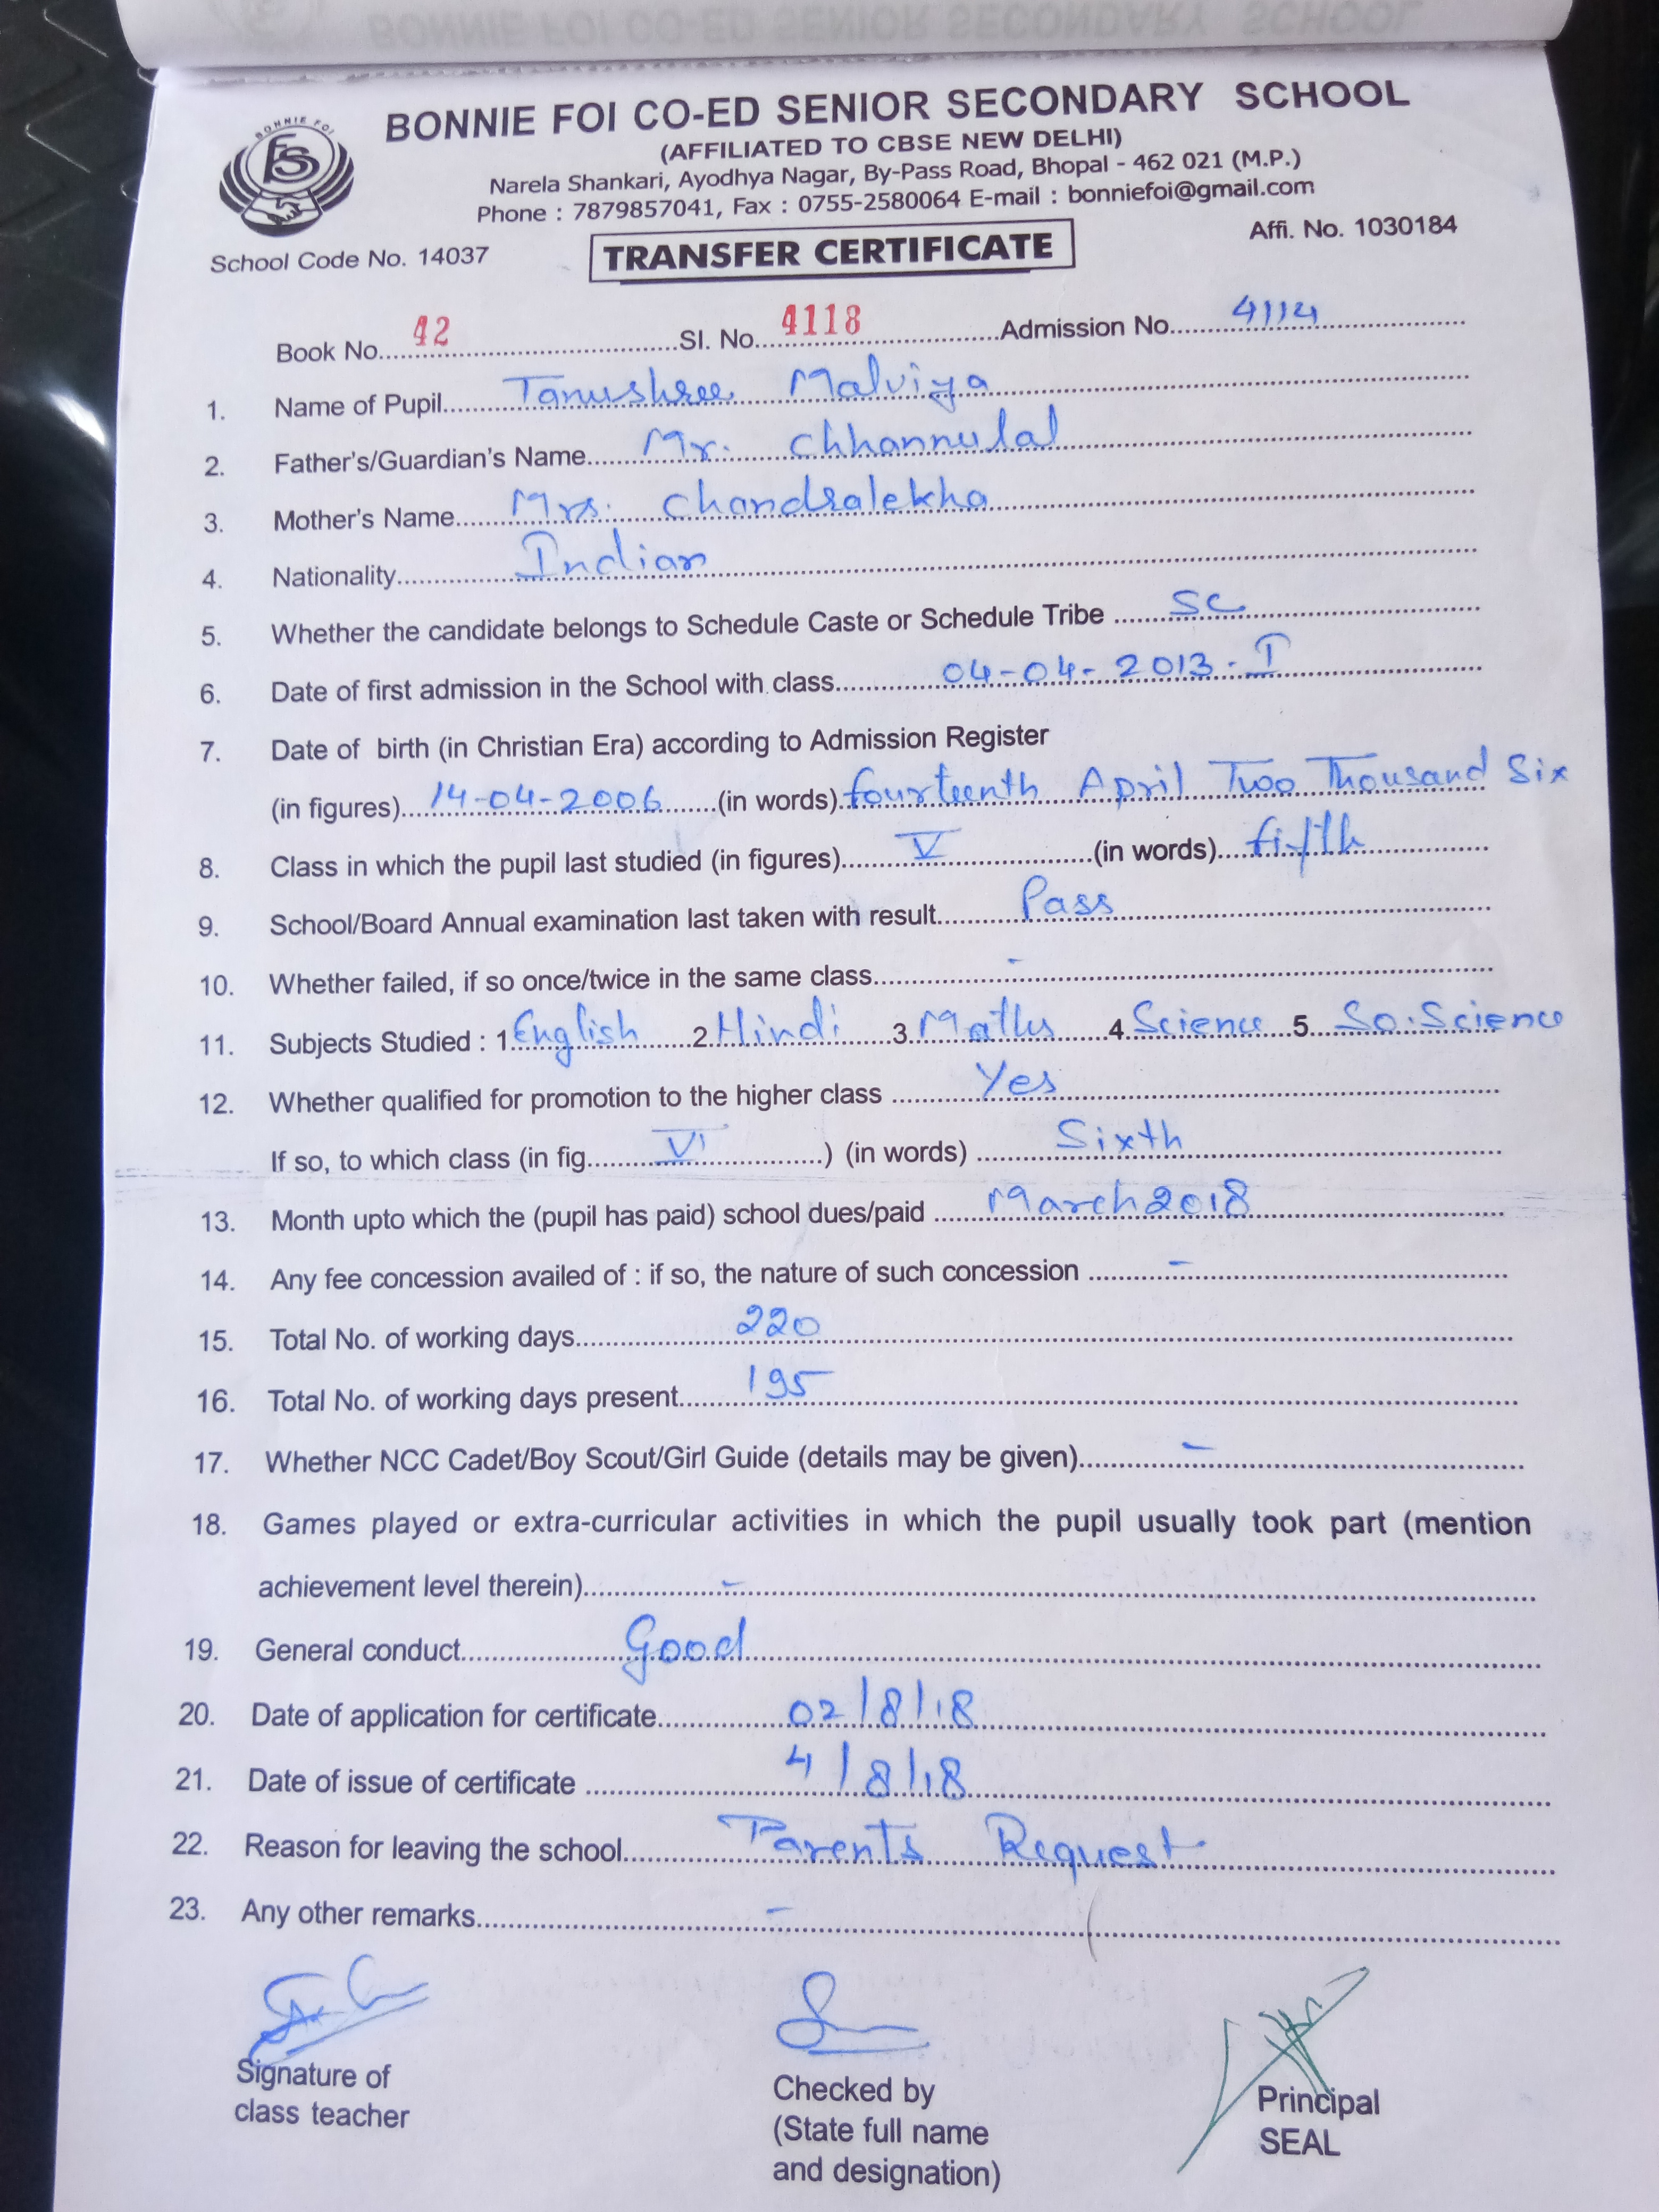 BONNIE FOI CO-ED SENIOR SECONDARY SCHOOL
BONNIE FOI
BONNIE FOI CO-ED SENIOR SECONDARY SCHOOL
(AFFILIATED TO CBSE NEW DELHI)
Narela Shankari, Ayodhya Nagar, By-Pass Road, Bhopal - 462 021 (M.P.)
Phone : 7879857041, Fax : 0755-2580064 E-mail : bonniefoi@gmail.com
School Code No. 14037 TRANSFER CERTIFICATE Affi. No. 1030184
Book No. 42 Sl. No. 4118 Admission No. 4114
1. Name of Pupil Tanushree Malviya
2. Father's/Guardian's Name Mr. Chhannulal
3. Mother's Name Mrs. Chandralekha
4. Nationality Indian
5. Whether the candidate belongs to Schedule Caste or Schedule Tribe SC
6. Date of first admission in the School with class 04-04-2013 - I
7. Date of birth (in Christian Era) according to Admission Register
(in figures) 14-04-2006 (in words) fourteenth April Two Thousand Six
8. Class in which the pupil last studied (in figures) V (in words) fifth
9. School/Board Annual examination last taken with result Pass
10. Whether failed, if so once/twice in the same class -
11. Subjects Studied : 1 English 2 Hindi 3 Maths 4 Science 5. So. Science
12. Whether qualified for promotion to the higher class Yes
If so, to which class (in fig. VI ) (in words) Sixth
13. Month upto which the (pupil has paid) school dues/paid March 2018
14. Any fee concession availed of : if so, the nature of such concession -
15. Total No. of working days 220
16. Total No. of working days present 195
17. Whether NCC Cadet/Boy Scout/Girl Guide (details may be given) -
18. Games played or extra-curricular activities in which the pupil usually took part (mention
achievement level therein) -
19. General conduct Good
20. Date of application for certificate 02/8/18
21. Date of issue of certificate 4/8/18
22. Reason for leaving the school Parents Request
23. Any other remarks -
Signature of
class teacher
Checked by
(State full name
and designation)
Principal
SEAL